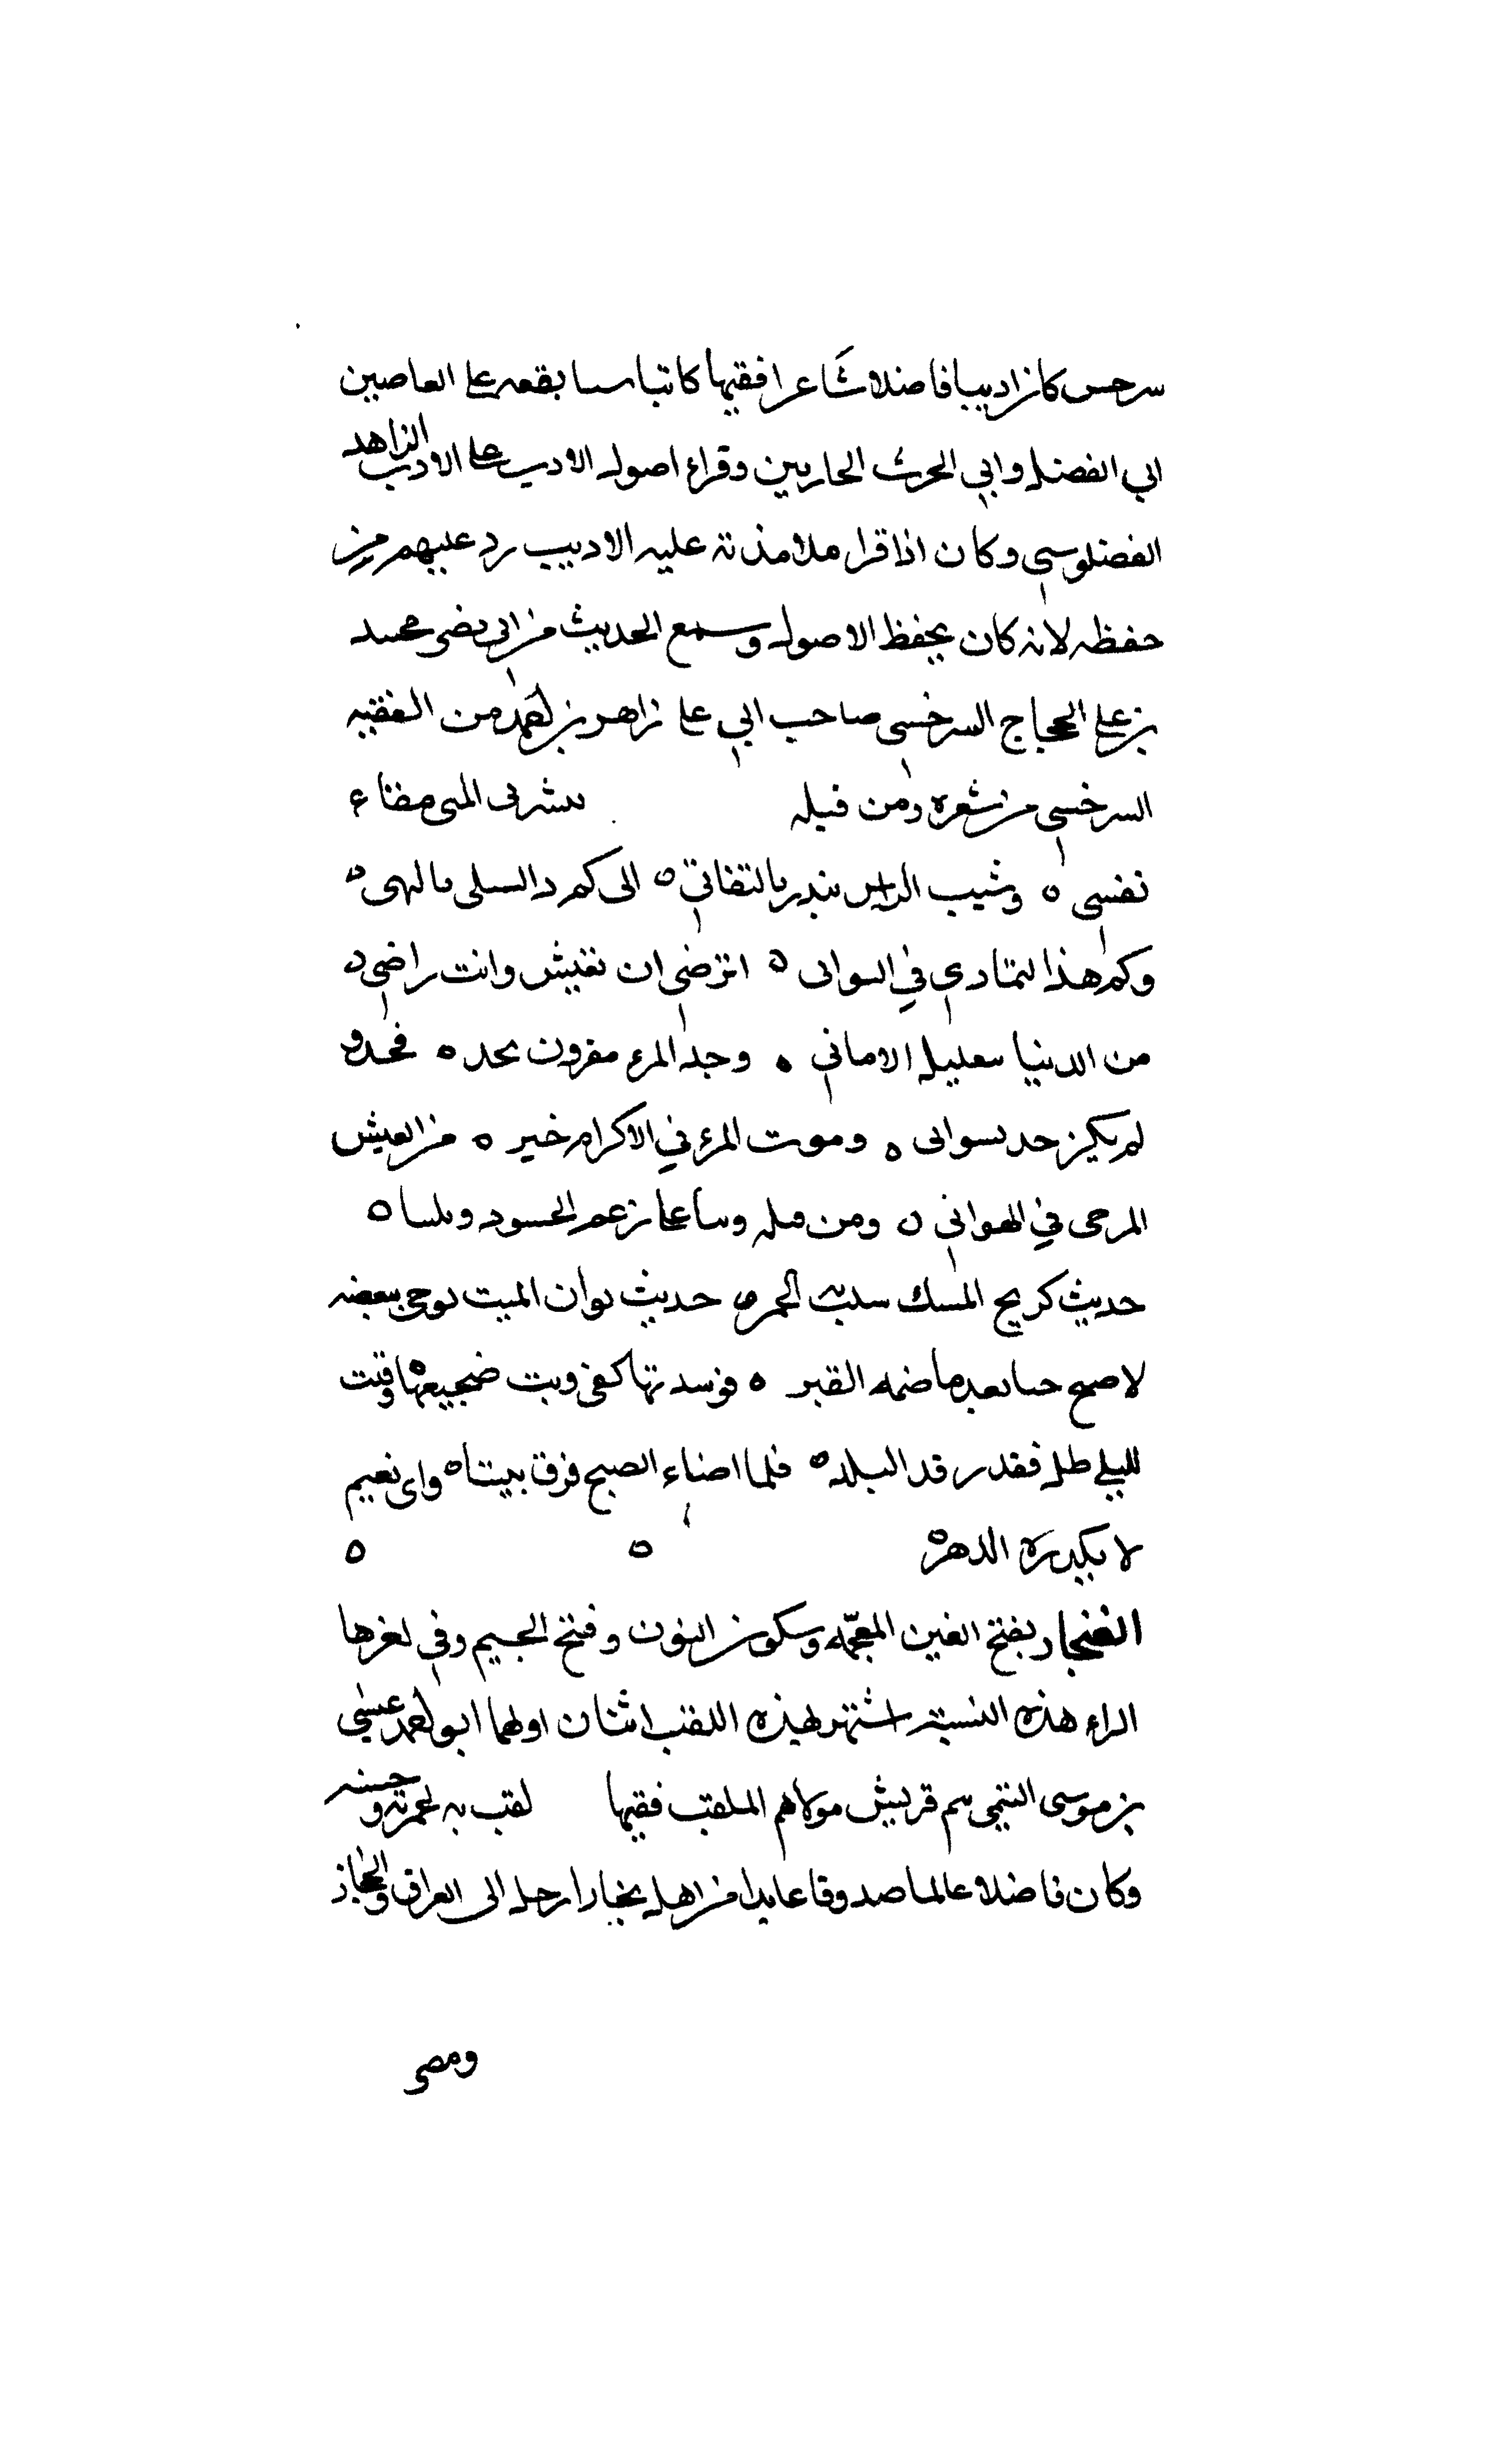 سرخس كان اديبا فاضلا شاعرا فقيها كاتبا بقعه على العاصيين
ابي الفضل وابي الحرث الحاربين وقراء اصول الادب على الاديب الزاهد
الفضلوسي وكان اذا قرا ملامذته عليه الاديب رد عليهم من
حفظه لانه كان يحفظ الاصول وسمع الحديث من ابي نصر محمد
بن على الحجاج السرخسي صاحب ابي على زاهر بن احمد من الفقيه
السرخسي من شعره ومن قيله المنى مضاء
نفسى ه وشيب الراس بالتفاني ه الى كم ه
وكم هذا التمادي في التوانى ه اترضى ان تعيش وانت راضى ه
من الدنيا بتعليل الامانى ه وجد المرء مقرون بحد ه
لم يكن حد ه وموت المرء في الاكرام خير ه من العيش
المرحى في الهوانى ه ومن قيله على زعم الحسود ه
حديث كريح المسك الخمر ه حديث لو ان الميت ببعضه
لاصبح حيا بعد ما ضمه القبر ه فوسدتها كفى وبت ضجيعها ه وقلت
لليلى طل فقد رقد البدر ه فلما اضاء الصبح فرق بيننا ه واى نعيم
لا يكدره الدهر ه ه ه
الغنجار بفتح الغين المعجمه وسكون النون وفتح الجيم وفي اخرها
الراء هذه النسبة اشتهر بهذه اللقب اثنان اولهما ابو احمد عيسى
بن موسى التيمى قريش مولاهم الملقب فقيها لقب به لحمرته وحسنه
وكان فاضلا عالما صدوقا عابدا من اهل بخارا رحل الى العراق والحجاز
ومصر